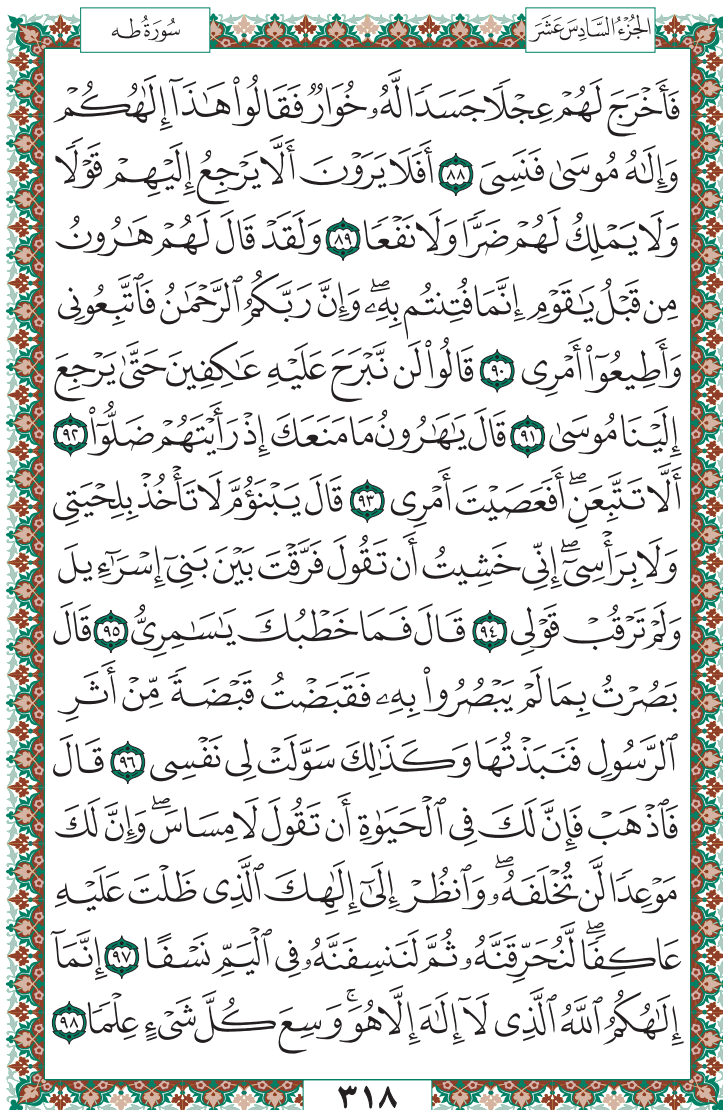 الجُزْءُ السَّادِسَ عَشَرَ سُورَةُ طه
فَأَخْرَجَ لَهُمْ عِجْلًا جَسَدًا لَّهُۥ خُوَارٌ فَقَالُوا۟ هَـٰذَآ إِلَـٰهُكُمْ
وَإِلَـٰهُ مُوسَىٰ فَنَسِىَ ٨٨ أَفَلَا يَرَوْنَ أَلَّا يَرْجِعُ إِلَيْهِمْ قَوْلًا
وَلَا يَمْلِكُ لَهُمْ ضَرًّا وَلَا نَفْعًا ٨٩ وَلَقَدْ قَالَ لَهُمْ هَـٰرُونُ
مِن قَبْلُ يَـٰقَوْمِ إِنَّمَا فُتِنتُم بِهِۦۖ وَإِنَّ رَبَّكُمُ ٱلرَّحْمَـٰنُ فَٱتَّبِعُونِى
وَأَطِيعُوٓا۟ أَمْرِى ٩٠ قَالُوا۟ لَن نَّبْرَحَ عَلَيْهِ عَـٰكِفِينَ حَتَّىٰ يَرْجِعَ
إِلَيْنَا مُوسَىٰ ٩١ قَالَ يَـٰهَـٰرُونُ مَا مَنَعَكَ إِذْ رَأَيْتَهُمْ ضَلُّوٓا۟ ٩٢
أَلَّا تَتَّبِعَنِۖ أَفَعَصَيْتَ أَمْرِى ٩٣ قَالَ يَبْنَؤُمَّ لَا تَأْخُذْ بِلِحْيَتِى
وَلَا بِرَأْسِىٓۖ إِنِّى خَشِيتُ أَن تَقُولَ فَرَّقْتَ بَيْنَ بَنِىٓ إِسْرَٰٓءِيلَ
وَلَمْ تَرْقُبْ قَوْلِى ٩٤ قَالَ فَمَا خَطْبُكَ يَـٰسَـٰمِرِىُّ ٩٥ قَالَ
بَصُرْتُ بِمَا لَمْ يَبْصُرُوا۟ بِهِۦ فَقَبَضْتُ قَبْضَةً مِّنْ أَثَرِ
ٱلرَّسُولِ فَنَبَذْتُهَا وَكَذَٰلِكَ سَوَّلَتْ لِى نَفْسِى ٩٦ قَالَ
فَٱذْهَبْ فَإِنَّ لَكَ فِى ٱلْحَيَوٰةِ أَن تَقُولَ لَا مِسَاسَۖ وَإِنَّ لَكَ
مَوْعِدًا لَّن تُخْلَفَهُۥۖ وَٱنظُرْ إِلَىٰٓ إِلَـٰهِكَ ٱلَّذِى ظَلْتَ عَلَيْهِ
عَاكِفًاۖ لَّنُحَرِّقَنَّهُۥ ثُمَّ لَنَنسِفَنَّهُۥ فِى ٱلْيَمِّ نَسْفًا ٩٧ إِنَّمَآ
إِلَـٰهُكُمُ ٱللَّهُ ٱلَّذِى لَآ إِلَـٰهَ إِلَّا هُوَۚ وَسِعَ كُلَّ شَىْءٍ عِلْمًا ٩٨
٣١٨